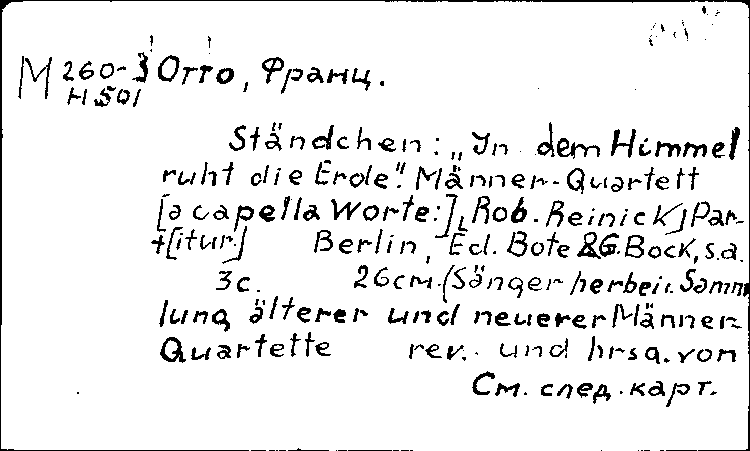 M 260-3 Отто, Франц.
H 501
Ständchen: „In dem Himmel
ruht die Erde". Männer-Quartett
[a capella Worte:], Rob. Reinick] Par-
t[itur] Berlin, Ed. Bote & G. Bock, s.a.
3 с. 26 см. (Sänger herbei. Samm
lung älterer und neuerer Männer-
Quartette rev. und hrsg. von
См. след. карт.